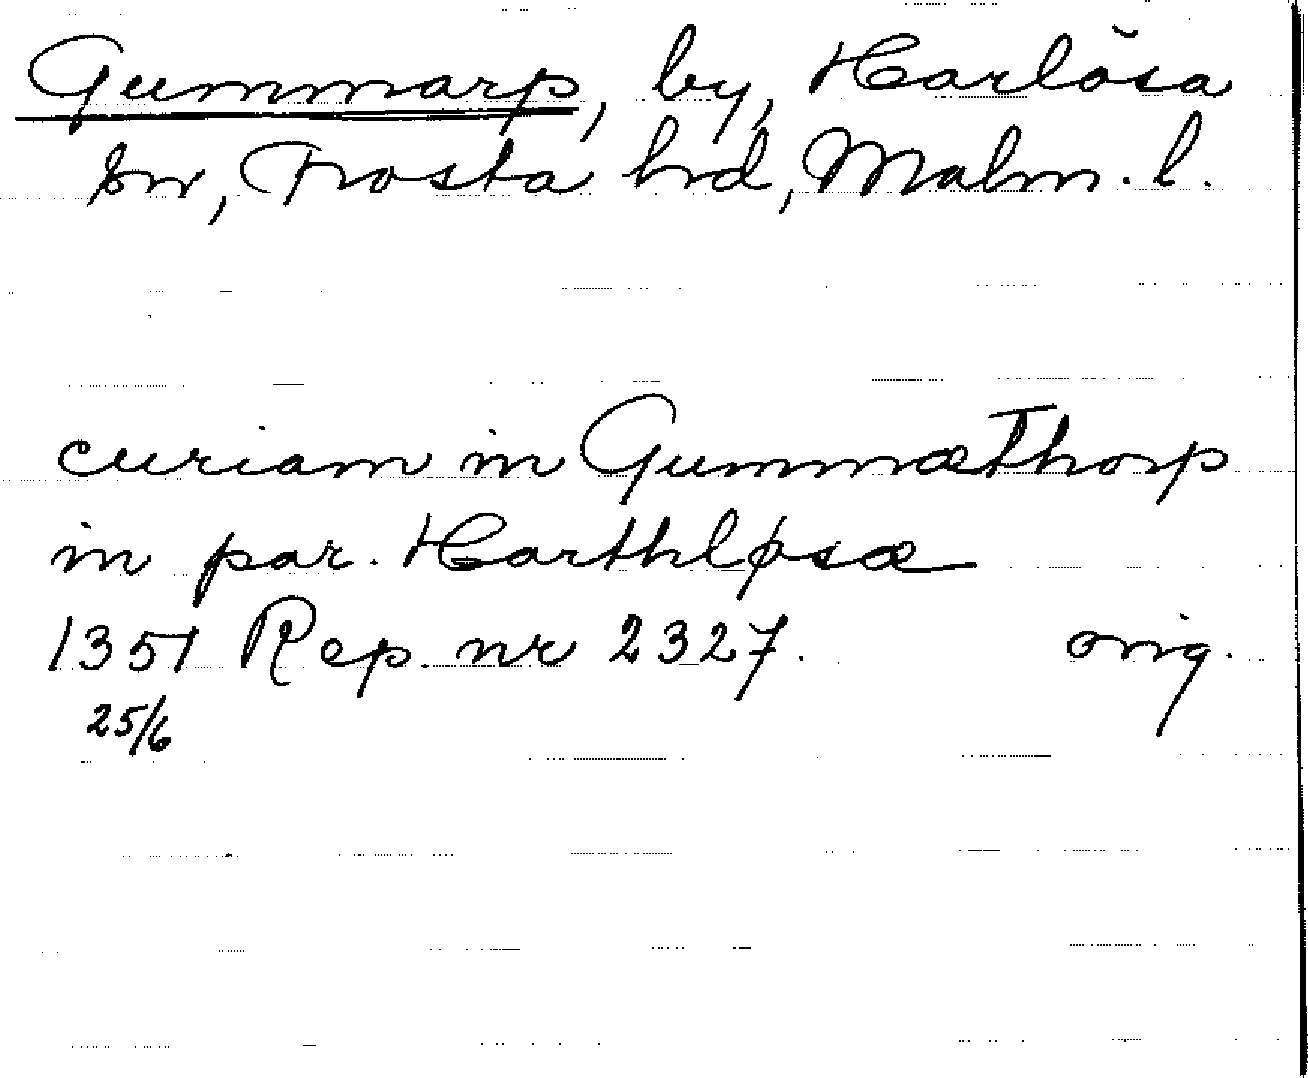 Gummarp, by, Harlösa
sn, Frosta hrd, Malm. l.
curiam in GummæThorp
in par. Harthløsæ
1351 Rep. nr 2327. orig.
25/6